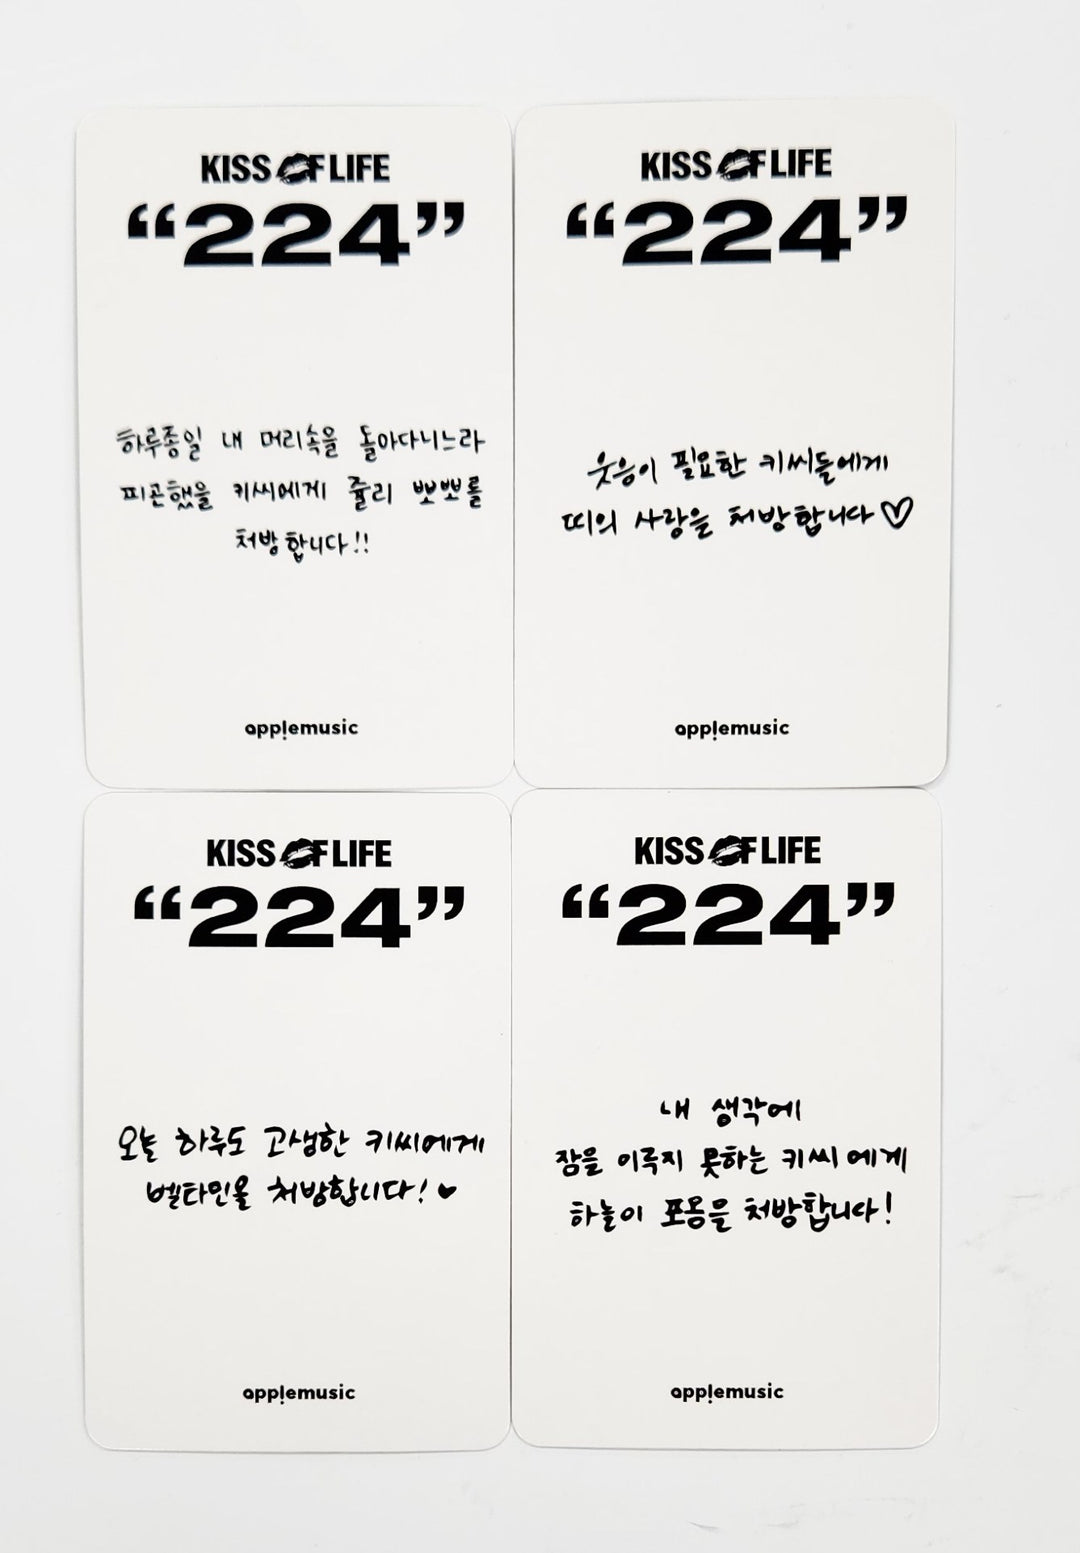 KISS OF LIFE
“224”
하루종일 내 머리속을 돌아다니느라
피곤했을 키씨에게 쥴리 뽀뽀를
처방합니다!!
applemusic
KISS OF LIFE
“224”
웃음이 필요한 키씨들에게
띠의 사랑을 처방합니다♡
applemusic
KISS OF LIFE
“224”
오늘 하루도 고생한 키씨에게
벨타민을 처방합니다!♥
applemusic
KISS OF LIFE
“224”
내 생각에
잠을 이루지 못하는 키씨에게
하늘이 포옹을 처방합니다!
applemusic